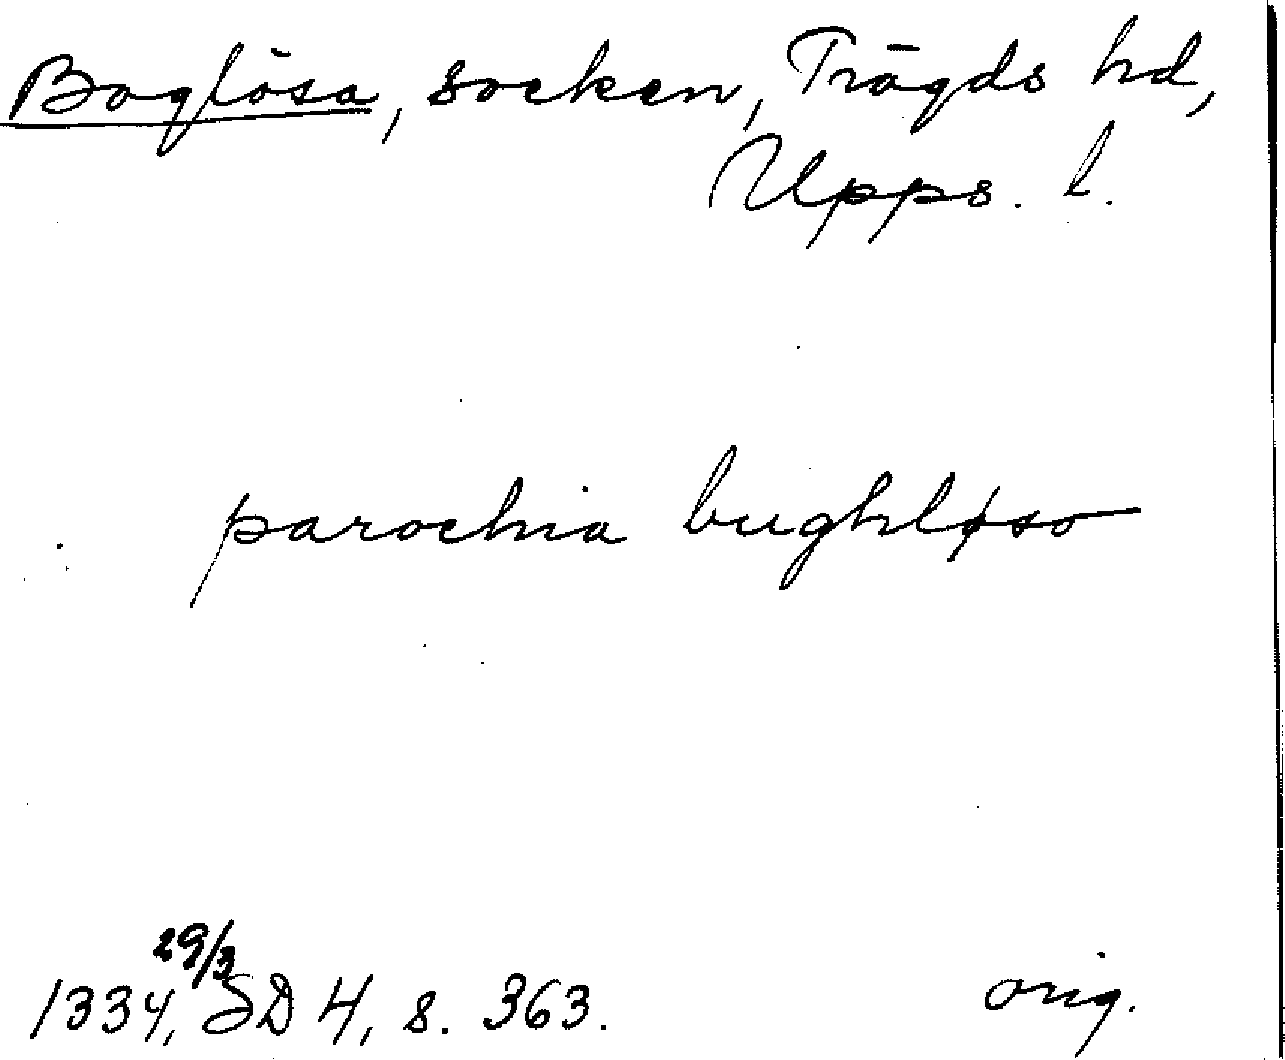 Boglösa, socken, Trögds hd,
Upps. l.
parochia bughløso
29/3
1334, SD 4, s. 363.
orig.